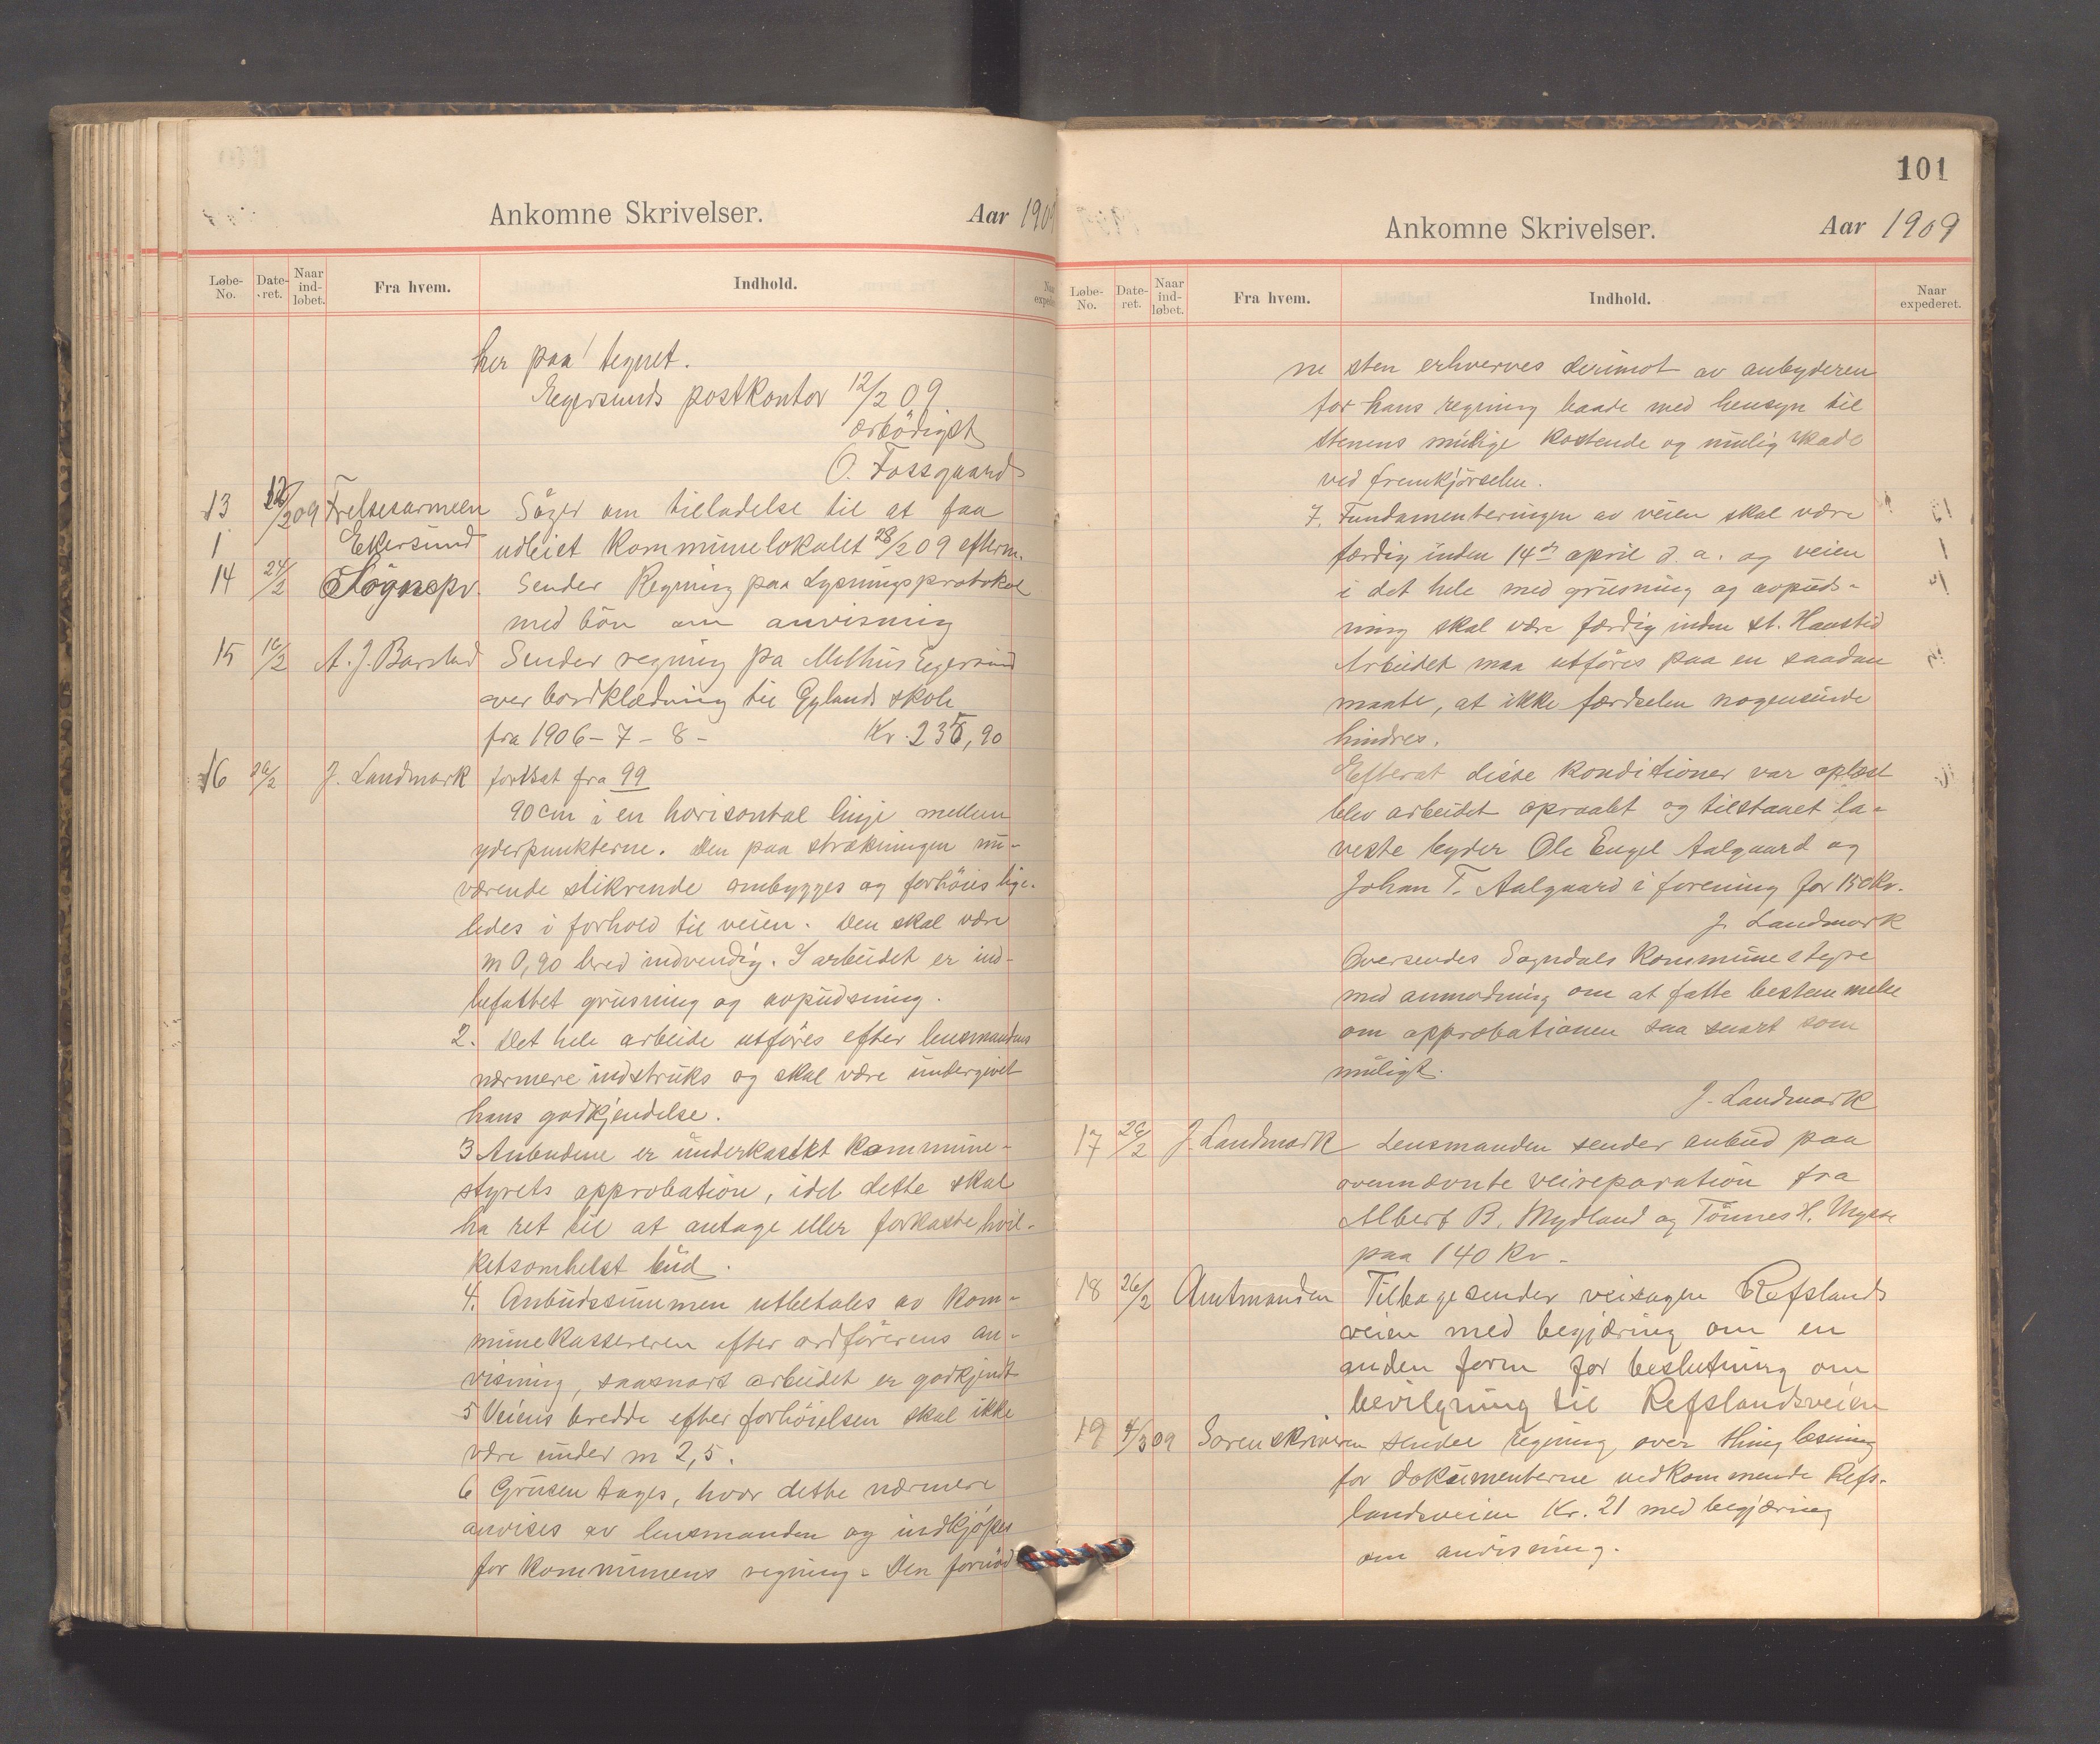 Ankomne Skrivelser.
Aar 1909
Løbe-No.
Date-ret.
Naar ind-løbet.
Fra hvem.
Indhold.
her paa tegnet.
Egersunds postkontor 12/2 09
ærbödigst
O. Fossgaard
13 /209 Frelsesarmeen Söger om tilladelse til at faa
Ekersund udleiet kommunelokalet 28/2 09 efterm.
14 24/2 Sognepr. Sender Regning paa Lysningsprotokol
med bön om anvisning
15 A. J. Barstad Sender regning pa Melhus Egersund
over bordklædning til Gylands skole
fra 1906-7-8- Kr.
16 26/2 J. Landmark fortsat fra 99
90 cm i en horisontal linje mellem
yderpunkterne. Den paa strækningen nu-
værende stikrende ombygges og forhöies lige-
ledes i forhold til veien. Den skal være
m 0,90 bred indvendig. I arbeidet er ind-
befattet grusning og avpudsning.
2. Det hele arbeide utföres efter lensmandens
nærmere indstruks og skal være undergivet
hans godkjendelse.
3 Anbudene er underkastet kommune-
styrets approbation, idet dette skal
ha ret til at antage eller forkaste hvil-
ketsomhelst bud.
4. Anbudssummen utbetales av kom-
munekassereren efter ordförerens an-
visning, saasnart arbeidet er godkjendt
5 Veiens bredde efter forhöielsen skal ikke
være under m 2,5.
6 Grusen tages, hvor dette nærmere
anvises av lensmanden og indkjöpes
for kommunens regning. Den fornöd
101
Ankomne Skrivelser.
Aar 1909
Løbe-No.
Date-ret.
Naar ind-løbet.
Fra hvem.
Indhold.
Naar expederet.
ne sten erhverves derimot av anbyderen
for hans regning baade med hensyn til
stenens mulige kostende og mulig skade
ved fremkjörselen.
7. Fundamenteringen av veien skal være
færdig inden 14de april d. a. og veien
i det hele med grusning og avpuds-
ning skal være færdig inden st. Hanstid
Arbeidet maa utföres paa en saadan
maate, at ikke færdselen nogensinde
hindres.
Efterat disse konditioner var oplæst
blev arbeidet opraabt og tilstaaet la-
veste byder Ole Engel Aalgaard og
Johan T. Aalgaard i forening for 150 Kr.
J. Landmark
Oversendes Sogndals kommunestyre
med anmodning om at fatte bestemmelse
om approbationen saa snart som
muligt.
J. Landmark
17 26/2 J. Landmark Lensmanden sender anbud paa
ovennævnte veireparation fra
Albert B. Mydland og Tönnes H.
paa 140 Kr.
18 26/2 Amtmanden Tilbagesender veisagen Refslands
veien med begjæring om en
anden form for beslutning om
bevilgning til Refslandsveien
19 4/3 09 Sorenskriveren sender regning over thinglæsning
for dokumenterne vedkommende Refs-
landsveien Kr. 21 med begjæring
om anvisning.